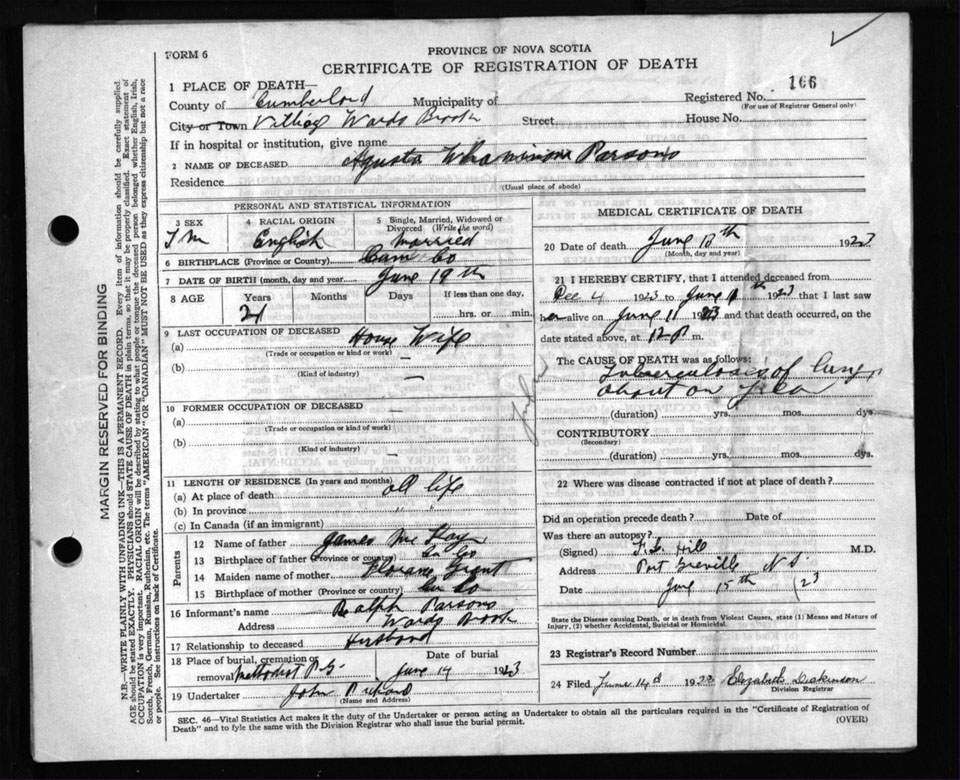 FORM 6
PROVINCE OF NOVA SCOTIA
CERTIFICATE OF REGISTRATION OF DEATH
MARGIN RESERVED FOR BINDING
N.B.—WRITE PLAINLY WITH UNFADING INK—THIS IS A PERMANENT RECORD. Every item of information should be carefully supplied.
AGE should be stated EXACTLY. PHYSICIANS should STATE CAUSE OF DEATH in plain terms, so that it may be properly classified. Exact statement of
OCCUPATION is very important. RACIAL ORIGIN will be described by stating to what people or tongue the deceased person belonged whether English, Irish,
Scotch, French, German, Russian, Ruthenian, etc. The terms "AMERICAN" OR "CANADIAN" MUST NOT BE USED as they express citizenship but not a race
or people. See instructions on back of Certificate.
1 PLACE OF DEATH—
County of Cumberland Municipality of
Registered No. 166
(For use of Registrar General only)
City or Town Village Wards Brook Street House No.
If in hospital or institution, give name
2 NAME OF DECEASED Agusta Parsons
Residence
(Usual place of abode)
PERSONAL AND STATISTICAL INFORMATION
3 SEX
4 RACIAL ORIGIN English
5 Single, Married, Widowed or Divorced (Write the word) Married
6 BIRTHPLACE (Province or Country) Co
7 DATE OF BIRTH (month, day and year) June 19th
8 AGE Years Months Days If less than one day,
21 hrs. or min.
9 LAST OCCUPATION OF DECEASED
(a) House Wife
(Trade or occupation or kind of work)
(b) —
(Kind of industry)
10 FORMER OCCUPATION OF DECEASED
(a) —
(Trade or occupation or kind of work)
(b) —
(Kind of industry)
11 LENGTH OF RESIDENCE (In years and months)
(a) At place of death all life
(b) In province " "
(c) In Canada (if an immigrant)
Parents
12 Name of father James
13 Birthplace of father (Province or country) Co
14 Maiden name of mother Grant
15 Birthplace of mother (Province or country) Co
16 Informant's name Ralph Parsons
Address Wards Brook
17 Relationship to deceased Husband
18 Place of burial, cremation or removal Methodist
Date of burial June 14 1923
19 Undertaker John
(Name and Address)
MEDICAL CERTIFICATE OF DEATH
20 Date of death June 1923
(Month, day and year)
21 I HEREBY CERTIFY, that I attended deceased from
Dec 4 1923 to June 1923 that I last saw
her alive on June 11 1923 and that death occurred, on the
date stated above, at 12 P m.
The CAUSE OF DEATH was as follows:
Tuberculosis of lungs
about
(duration) yrs. mos. dys.
CONTRIBUTORY
(Secondary)
(duration) yrs. mos. dys.
22 Where was disease contracted if not at place of death?
Did an operation precede death? Date of
Was there an autopsy?
(Signed) Hill M.D.
Address Port Greville N S.
Date June 15th /23
State the Disease causing Death, or in death from Violent Causes, state (1) Means and Nature of Injury, (2) whether Accidental, Suicidal or Homicidal.
23 Registrar's Record Number
24 Filed June 14 1923 Elizabeth Dickinson
Division Registrar
SEC. 46—Vital Statistics Act makes it the duty of the Undertaker or person acting as Undertaker to obtain all the particulars required in the "Certificate of Registration of
Death" and to fyle the same with the Division Registrar who shall issue the burial permit.
(OVER)